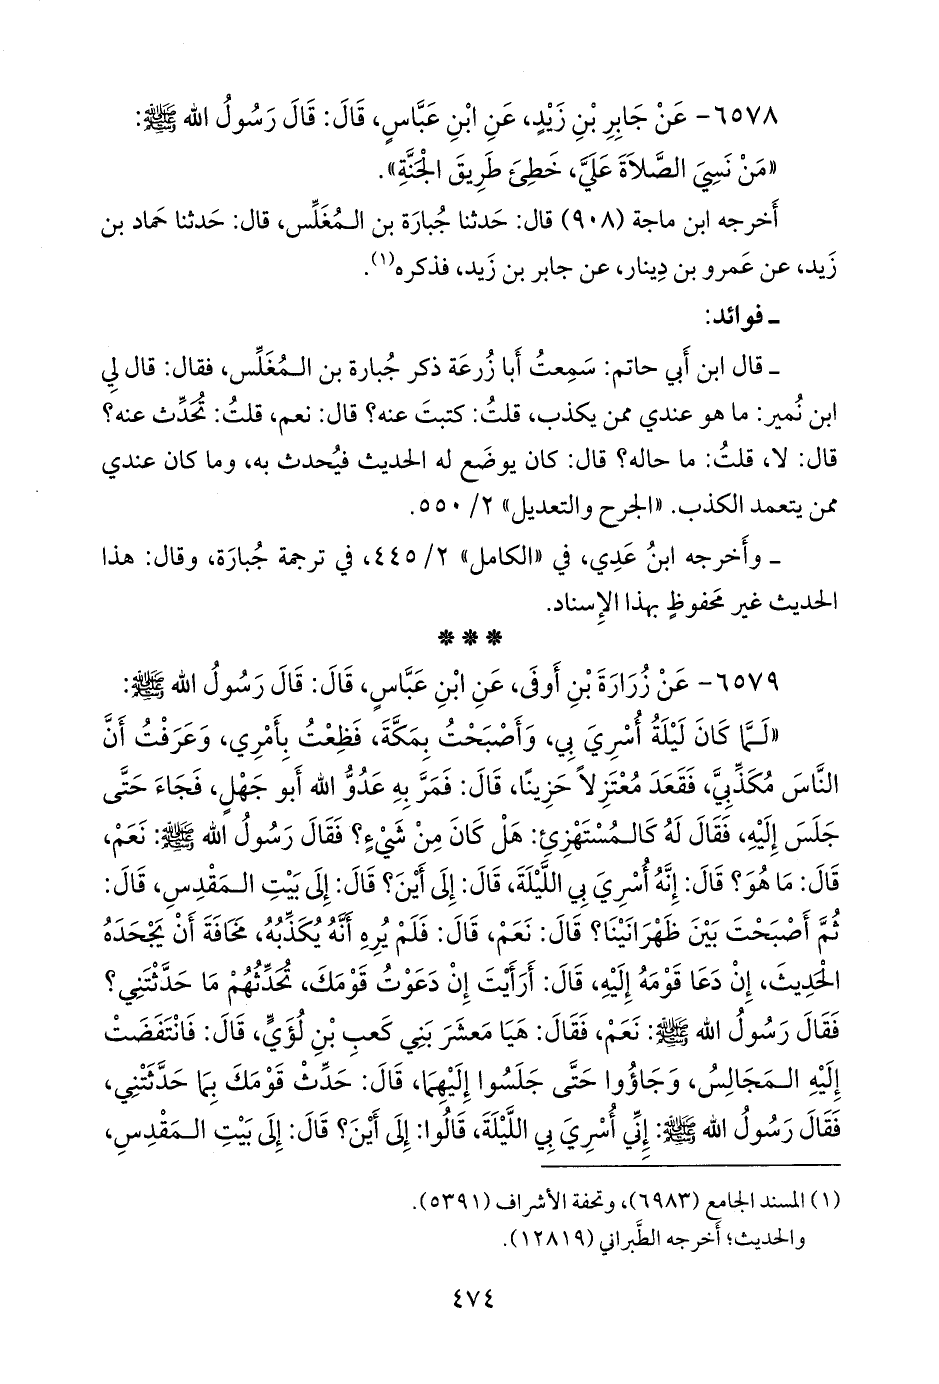 ٦٥٧٨- عَنْ جَابِرِ بْنِ زَيْدٍ، عَنِ ابْنِ عَبَّاسٍ، قَالَ: قَالَ رَسُولُ الله ﷺ:
«مَنْ نَسِيَ الصَّلاَةَ عَلَيَّ، خَطِئَ طَرِيقَ الْجَنَّةِ».
أَخرجه ابن ماجة (٩٠٨) قال: حَدثنا جُبارَة بن الـمُغَلِّس، قال: حَدثنا حَماد بن
زَيد، عن عَمرو بن دِينار، عن جابر بن زَيد، فذكره(١).
ـ فوائد:
ـ قال ابن أَبي حاتم: سَمِعتُ أَبا زُرعَة ذكر جُبارة بن الـمُغَلِّس، فقال: قال لِي
ابن نُمير: ما هو عندي ممن يكذب، قلتُ: كتبتَ عنه؟ قال: نعم، قلتُ: تُحَدِّث عنه؟
قال: لا، قلتُ: ما حاله؟ قال: كان يوضَع له الحديث فيُحدث به، وما كان عندي
ممن يتعمد الكذب. «الجرح والتعديل» ٢/ ٥٥٠.
ـ وأَخرجه ابنُ عَدِي، في «الكامل» ٢/ ٤٤٥، في ترجمة جُبارَة، وقال: هذا
الحديث غير مَحفوظٍ بهذا الإِسناد.
***
٦٥٧٩- عَنْ زُرَارَةَ بْنِ أَوفَى، عَنِ ابْنِ عَبَّاسٍ، قَالَ: قَالَ رَسُولُ الله ﷺ:
«لَـمَّا كَانَ لَيْلَةُ أُسْرِيَ بِي، وَأَصْبَحْتُ بِمَكَّةَ، فَظِعْتُ بِأَمْرِي، وَعَرَفْتُ أَنَّ
النَّاسَ مُكَذِّبِيَّ، فَقَعَدَ مُعْتَزِلاً حَزِينًا، قَالَ: فَمَرَّ بِهِ عَدُوُّ الله أَبو جَهْلٍ، فَجَاءَ حَتَّى
جَلَسَ إِلَيْهِ، فَقَالَ لَهُ كَالـمُسْتَهْزِئِ: هَلْ كَانَ مِنْ شَيْءٍ؟ فَقَالَ رَسُولُ الله ﷺ: نَعَمْ،
قَالَ: مَا هُوَ؟ قَالَ: إِنَّهُ أُسْرِيَ بِي اللَّيْلَةَ، قَالَ: إِلَى أَيْنَ؟ قَالَ: إِلَى بَيْتِ الـمَقْدِسِ، قَالَ:
ثُمَّ أَصْبَحْتَ بَيْنَ ظَهْرَانَيْنَا؟ قَالَ: نَعَمْ، قَالَ: فَلَمْ يُرِهِ أَنَّهُ يُكَذِّبُهُ، مَخَافَةَ أَنْ يَجْحَدَهُ
الْحَدِيثَ، إِنْ دَعَا قَوْمَهُ إِلَيْهِ، قَالَ: أَرَأَيْتَ إِنْ دَعَوْتُ قَوْمَكَ، تُحَدِّثُهُمْ مَا حَدَّثْتَنِي؟
فَقَالَ رَسُولُ الله ﷺ: نَعَمْ، فَقَالَ: هَيَا مَعشَرَ بَنِي كَعبِ بْنِ لُؤَيٍّ، قَالَ: فَانْتَفَضَتْ
إِلَيْهِ الـمَجَالِسُ، وَجَاؤُوا حَتَّى جَلَسُوا إِلَيْهِمَا، قَالَ: حَدِّثْ قَوْمَكَ بِمَا حَدَّثْتَنِي،
فَقَالَ رَسُولُ الله ﷺ: إِنِّي أُسْرِيَ بِي اللَّيْلَةَ، قَالُوا: إِلَى أَيْنَ؟ قَالَ: إِلَى بَيْتِ الـمَقْدِسِ،
(١) المسند الجامع (٦٩٨٣)، وتحفة الأشراف (٥٣٩١).
والحديث؛ أخرجه الطَّبراني (١٢٨١٩).
٤٧٤